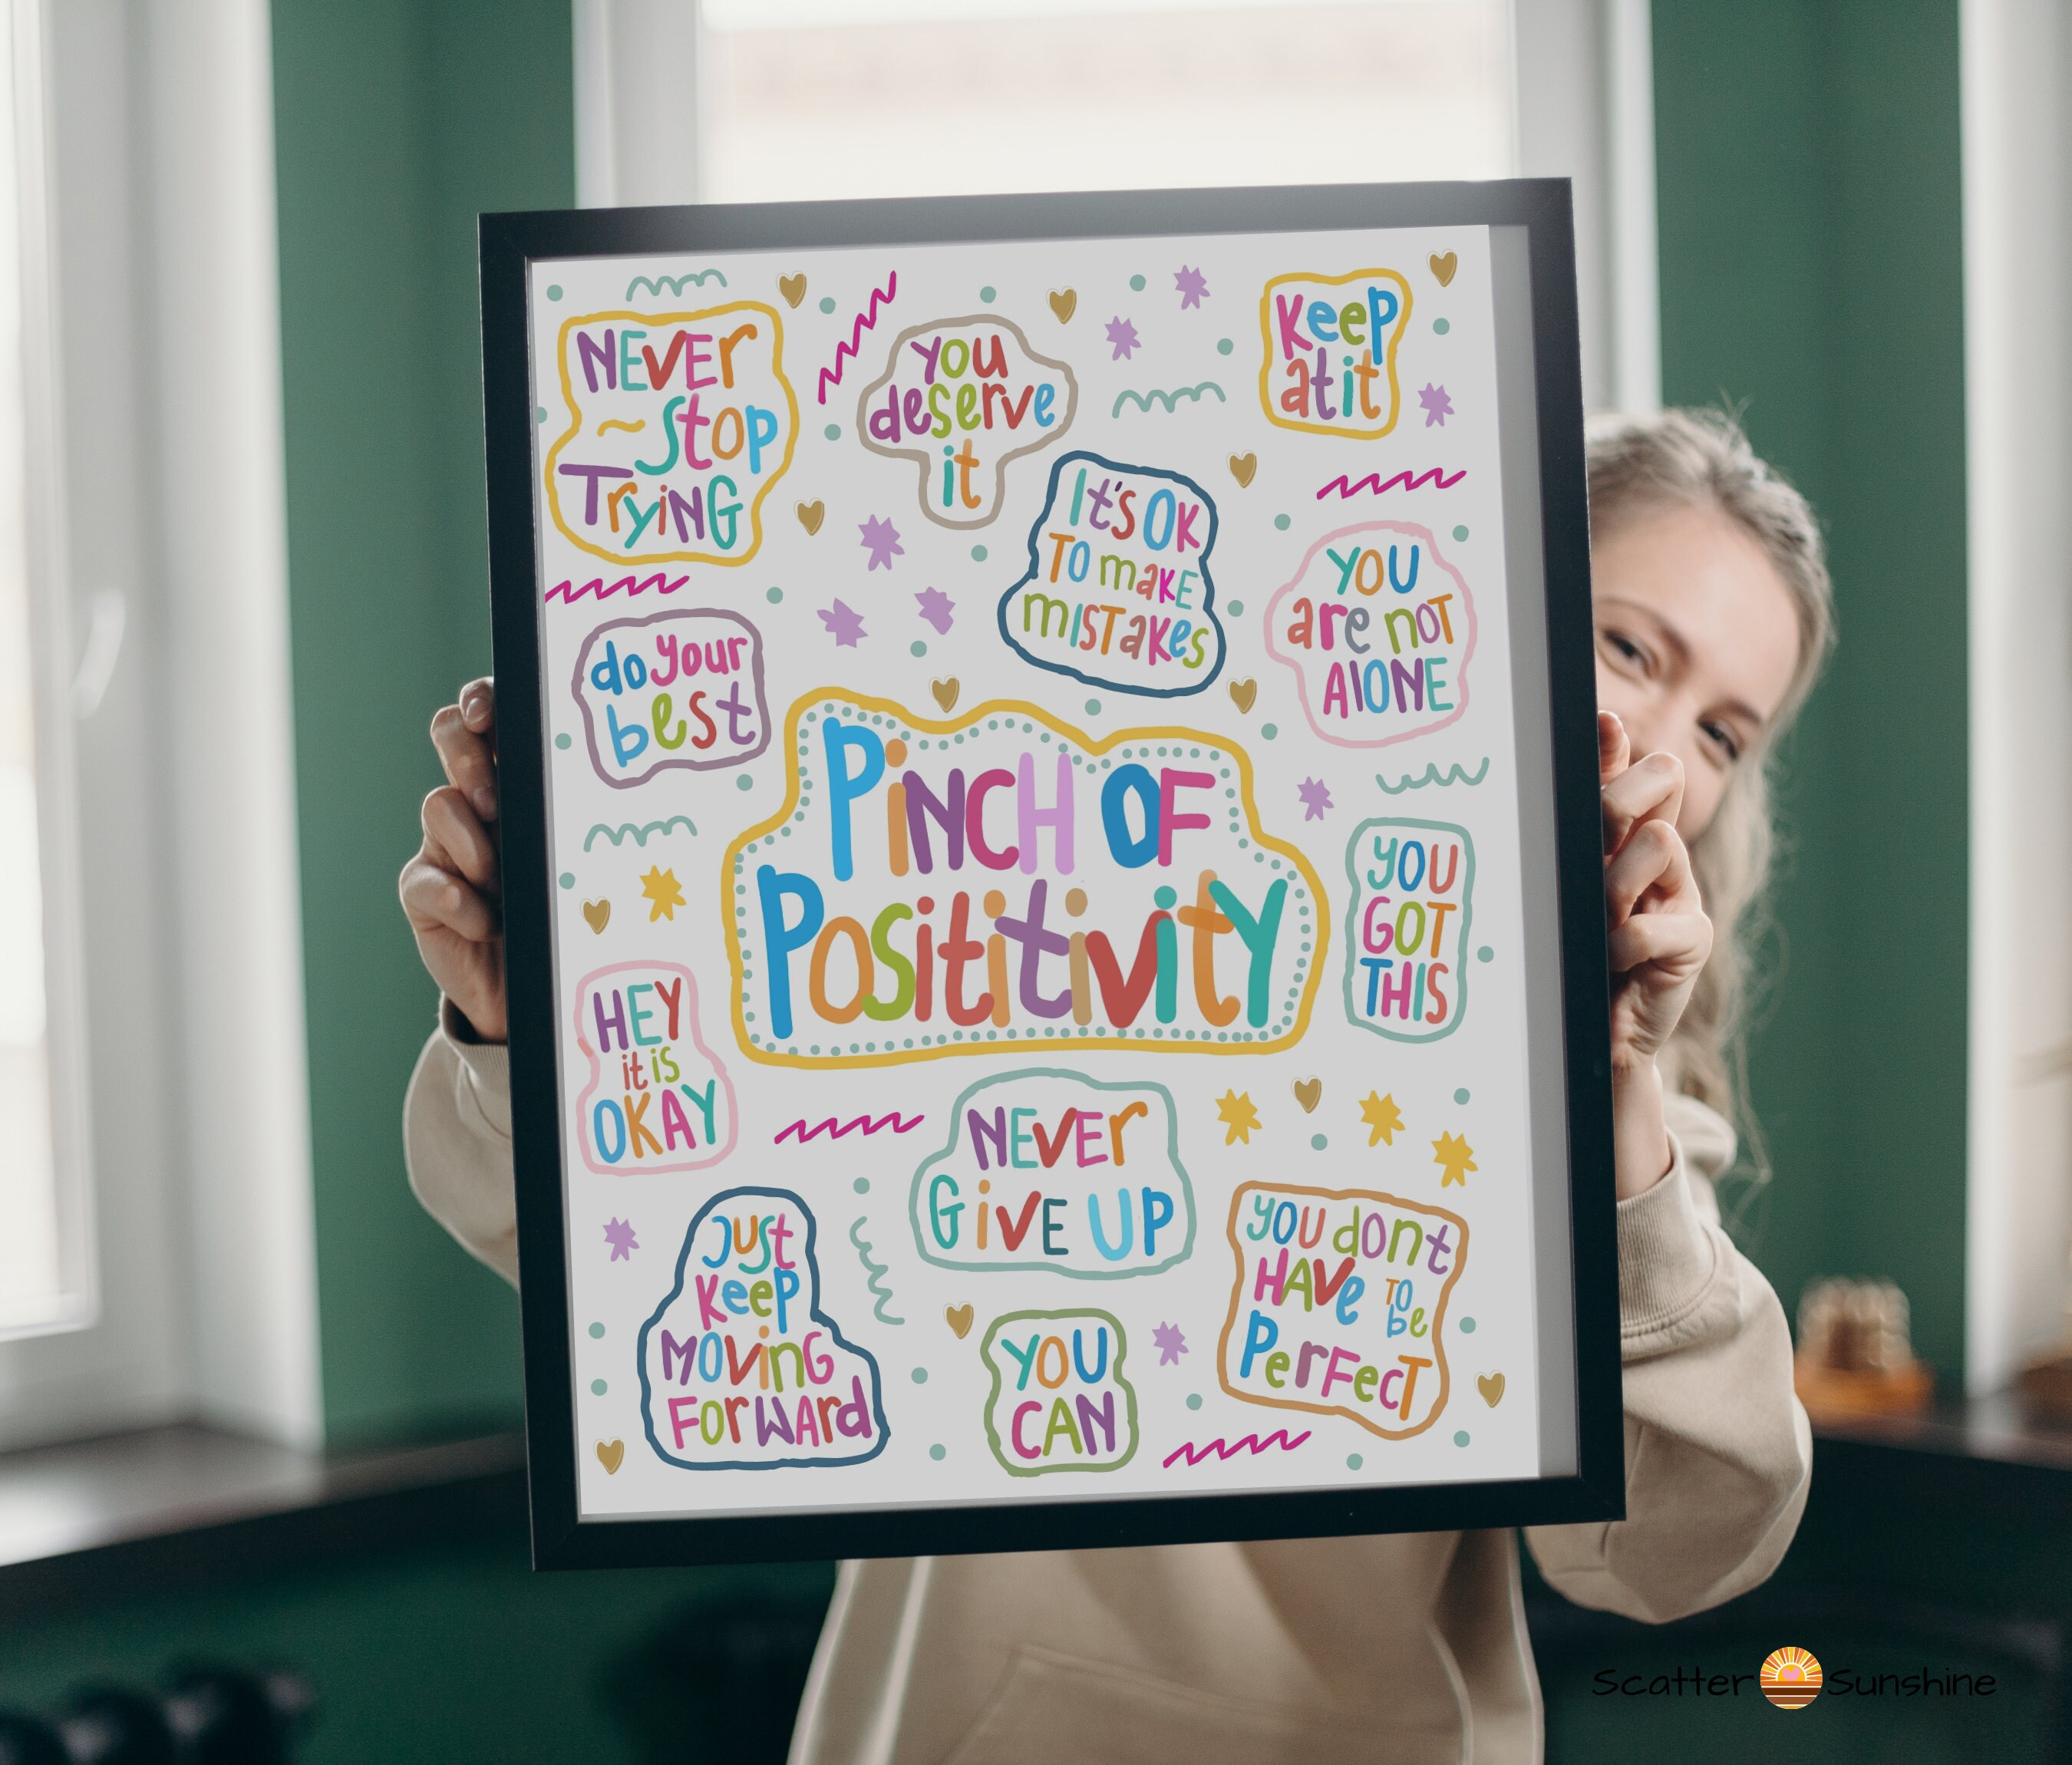 NEVEr
Stop
TryiNG
you
deserve
it
Keep
at it
It's OK
To maKE
misTaKes
YOU
are noT
AlONE
do your
best
PiNCH OF
PosititivitY
YOU
GOT
THIS
HEY
it is
OKAY
NEVEr
GiVE UP
Just
Keep
MovinG
ForwArd
YOU
CAN
YOU dont
HAVe TO be
PerFecT
Scatter Sunshine